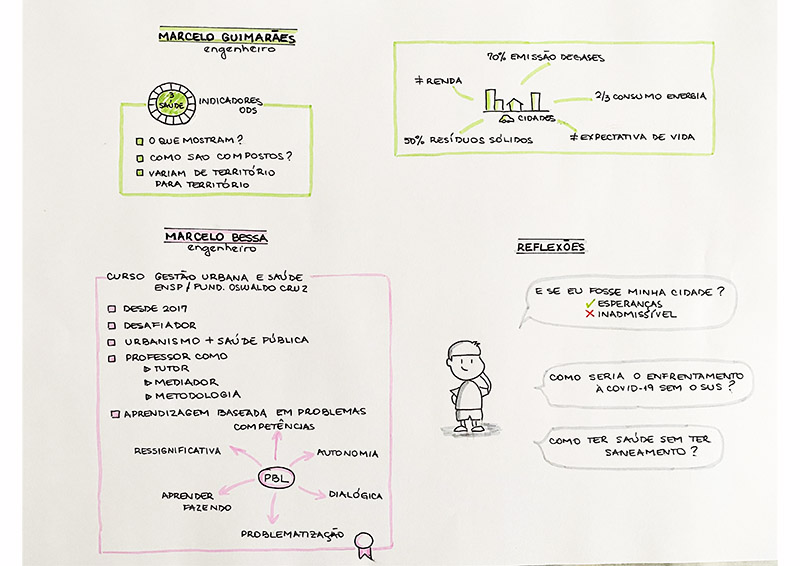 MARCELO GUIMARÃES
engenheiro
3
SAÚDE
INDICADORES
ODS
O QUE MOSTRAM?
COMO SAO COMPOSTOS?
VARIAM DE TERRITÓRIO
PARA TERRITÓRIO
70% EMISSÃO DE GASES
≠ RENDA
2/3 CONSUMO ENERGIA
CIDADES
50% RESÍDUOS SÓLIDOS
≠ EXPECTATIVA DE VIDA
MARCELO BESSA
engenheiro
CURSO GESTÃO URBANA E SAÚDE
ENSP / FUND. OSWALDO CRUZ
DESDE 2017
DESAFIADOR
URBANISMO + SAÚDE PÚBLICA
PROFESSOR COMO
TUTOR
MEDIADOR
METODOLOGIA
APRENDIZAGEM BASEADA EM PROBLEMAS
COMPETÊNCIAS
RESSIGNIFICATIVA
AUTONOMIA
PBL
APRENDER
FAZENDO
DIALÓGICA
PROBLEMATIZAÇÃO
REFLEXÕES
E SE EU FOSSE MINHA CIDADE?
✓ ESPERANÇAS
✗ INADMISSÍVEL
COMO SERIA O ENFRENTAMENTO
À COVID-19 SEM O SUS?
COMO TER SAÚDE SEM TER
SANEAMENTO?